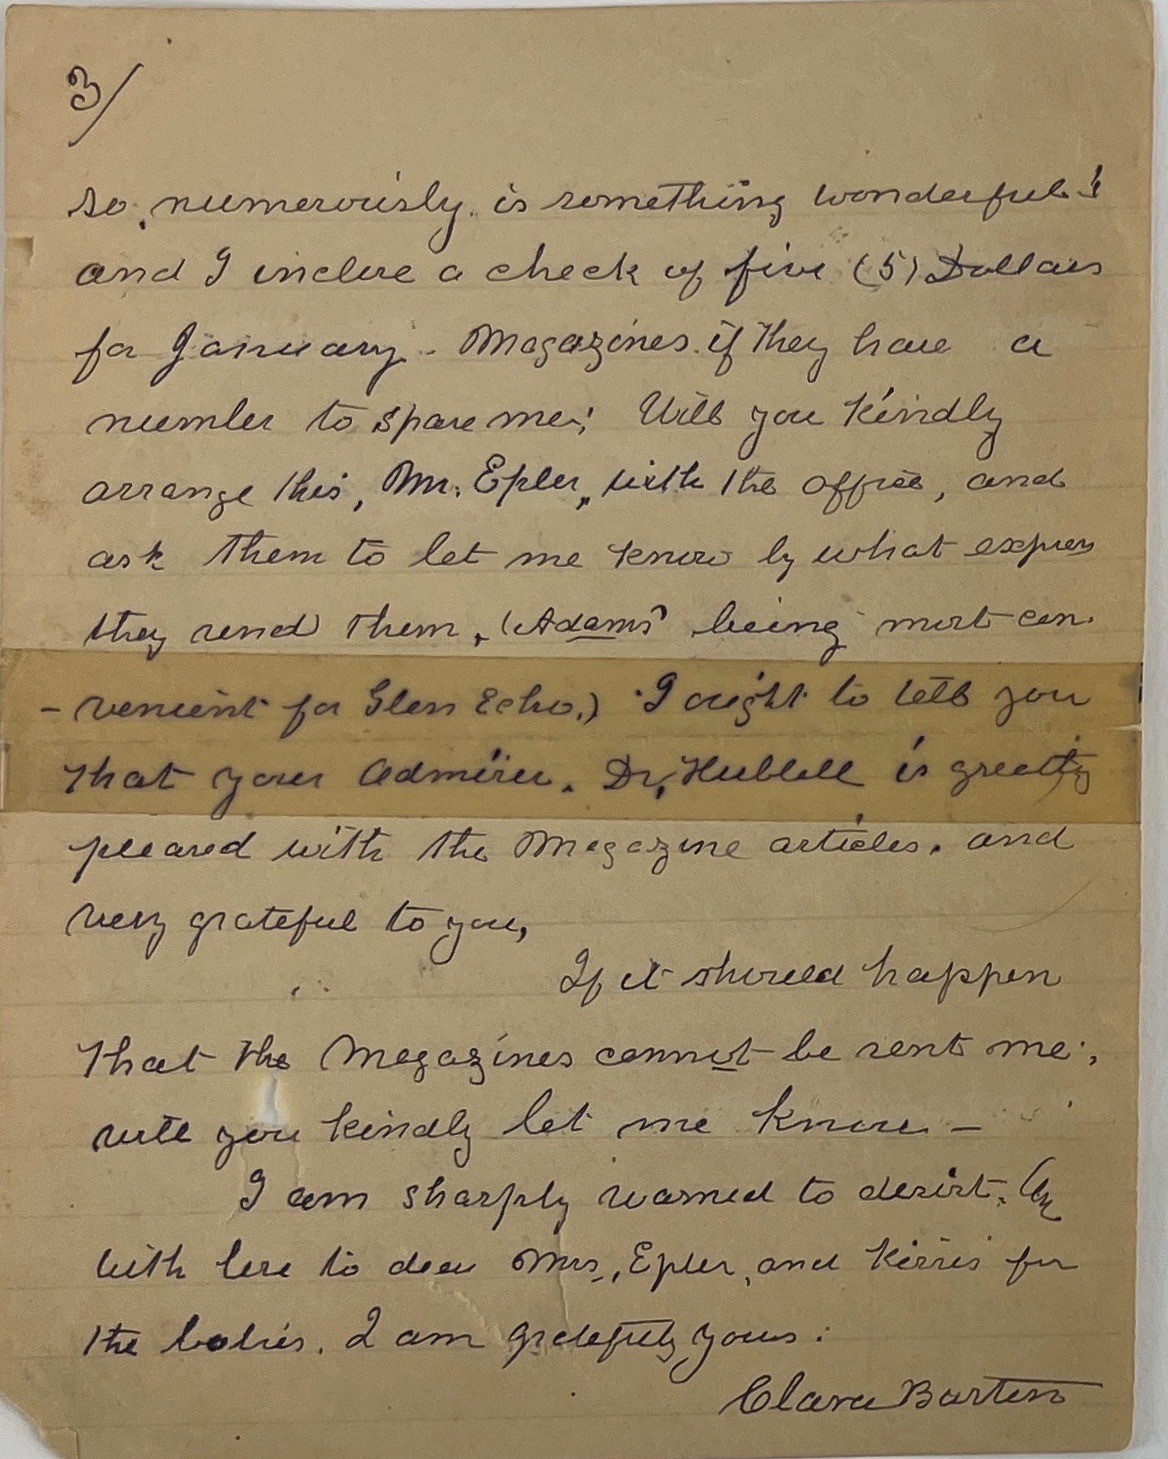 3/
so numerously is something wonderful!
and I inclose a check of five (5) Dollars
for January. Magazines. if they have a
number to spare me; Will you kindly
arrange this, Mr. Epler, with the office, and
ask them to let me know by what express
they send them, (Adams being most con-
-venient for Glen Echo.) I ought to tell you
that your admirer. Dr, Hubbell is greatly
pleased with the Magazine articles. and
very grateful to you,
If it should happen
that the Magazines cannot be sent me;
will you kindly let me know —
I am sharply warned to desist.
With love to dear Mrs, Epler, and Kisses for
the babies. I am gratefully yours:
Clara Barton